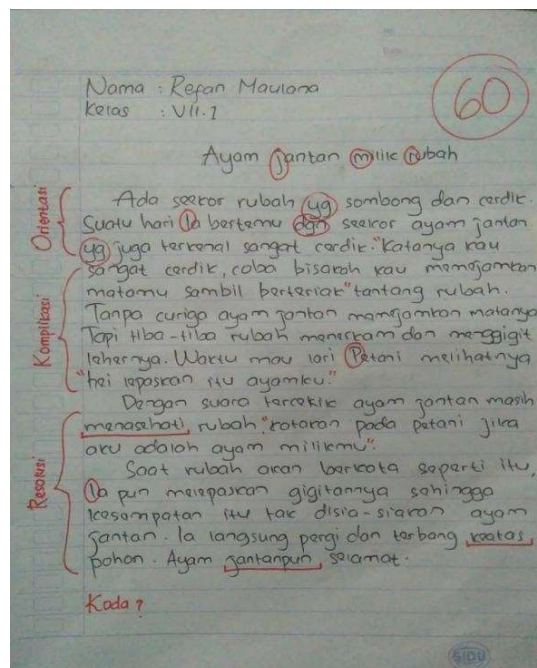 Nama : Refan Maulana
60
Kelas : VII.1
Ayam jantan milik rubah
Orientasi
Ada seekor rubah yg sombong dan cerdik.
Suatu hari Ia bertemu dgn seekor ayam jantan
yg juga terkenal sangat cerdik. "Katanya kau
sangat cerdik, coba bisakah kau memejamkan
Komplikasi
matamu sambil berteriak" tantang rubah.
Tanpa curiga ayam jantan memejamkan matanya
Tapi tiba-tiba rubah menerkam dan menggigit
lehernya. Waktu mau lari Petani melihatnya
"hei lepaskan itu ayamku."
Dengan suara tercekik ayam jantan masih
Resolusi
menasehati rubah "katakan pada petani jika
aku adalah ayam milikmu".
Saat rubah akan berkata seperti itu,
Ia pun melepaskan gigitannya sehingga
kesempatan itu tak disia-siakan ayam
jantan. Ia langsung pergi dan terbang keatas
pohon. Ayam jantanpun selamat.
Koda ?
SIDU